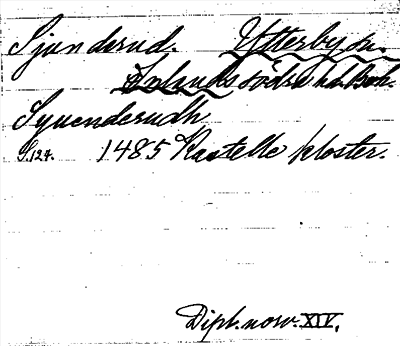 Sjunderud. Ytterby sn.
Inlands södra hd. Boh.
Syuenderudh
S.127. 1485 Kastelle kloster.
Dipl. norv. XIV.